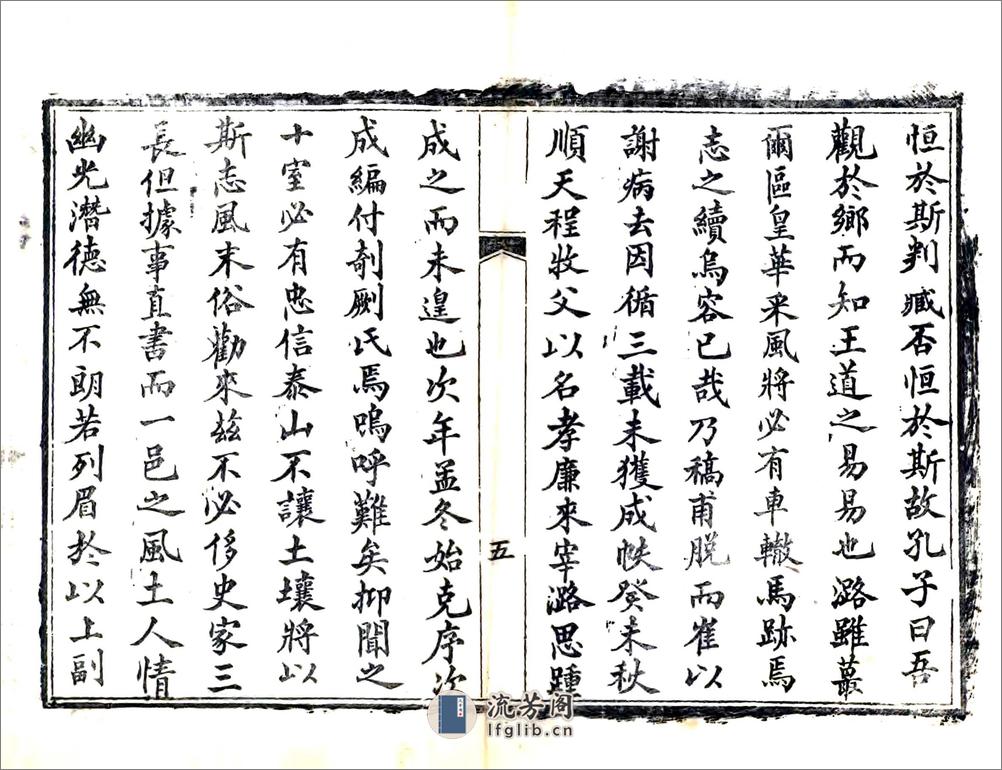 恒於斯判臧否恒於斯故孔子曰吾
觀於鄉而知王道之易易也潞雖蕞
爾區皇華采風將必有車轍馬跡焉
志之續烏容已哉乃稿甫脫而崔以
謝病去因循三載未獲成帙癸未秋
順天程牧父以名孝廉來宰潞思踵
五
成之而未遑也次年孟冬始克序次
成編付剞劂氏焉嗚呼難矣抑聞之
十室必有忠信泰山不讓土壤將以
斯志風末俗勸來茲不必侈史家三
長但據事直書而一邑之風土人情
幽光潛德無不朗若列眉於以上副
流芳阁
lfglib.cn